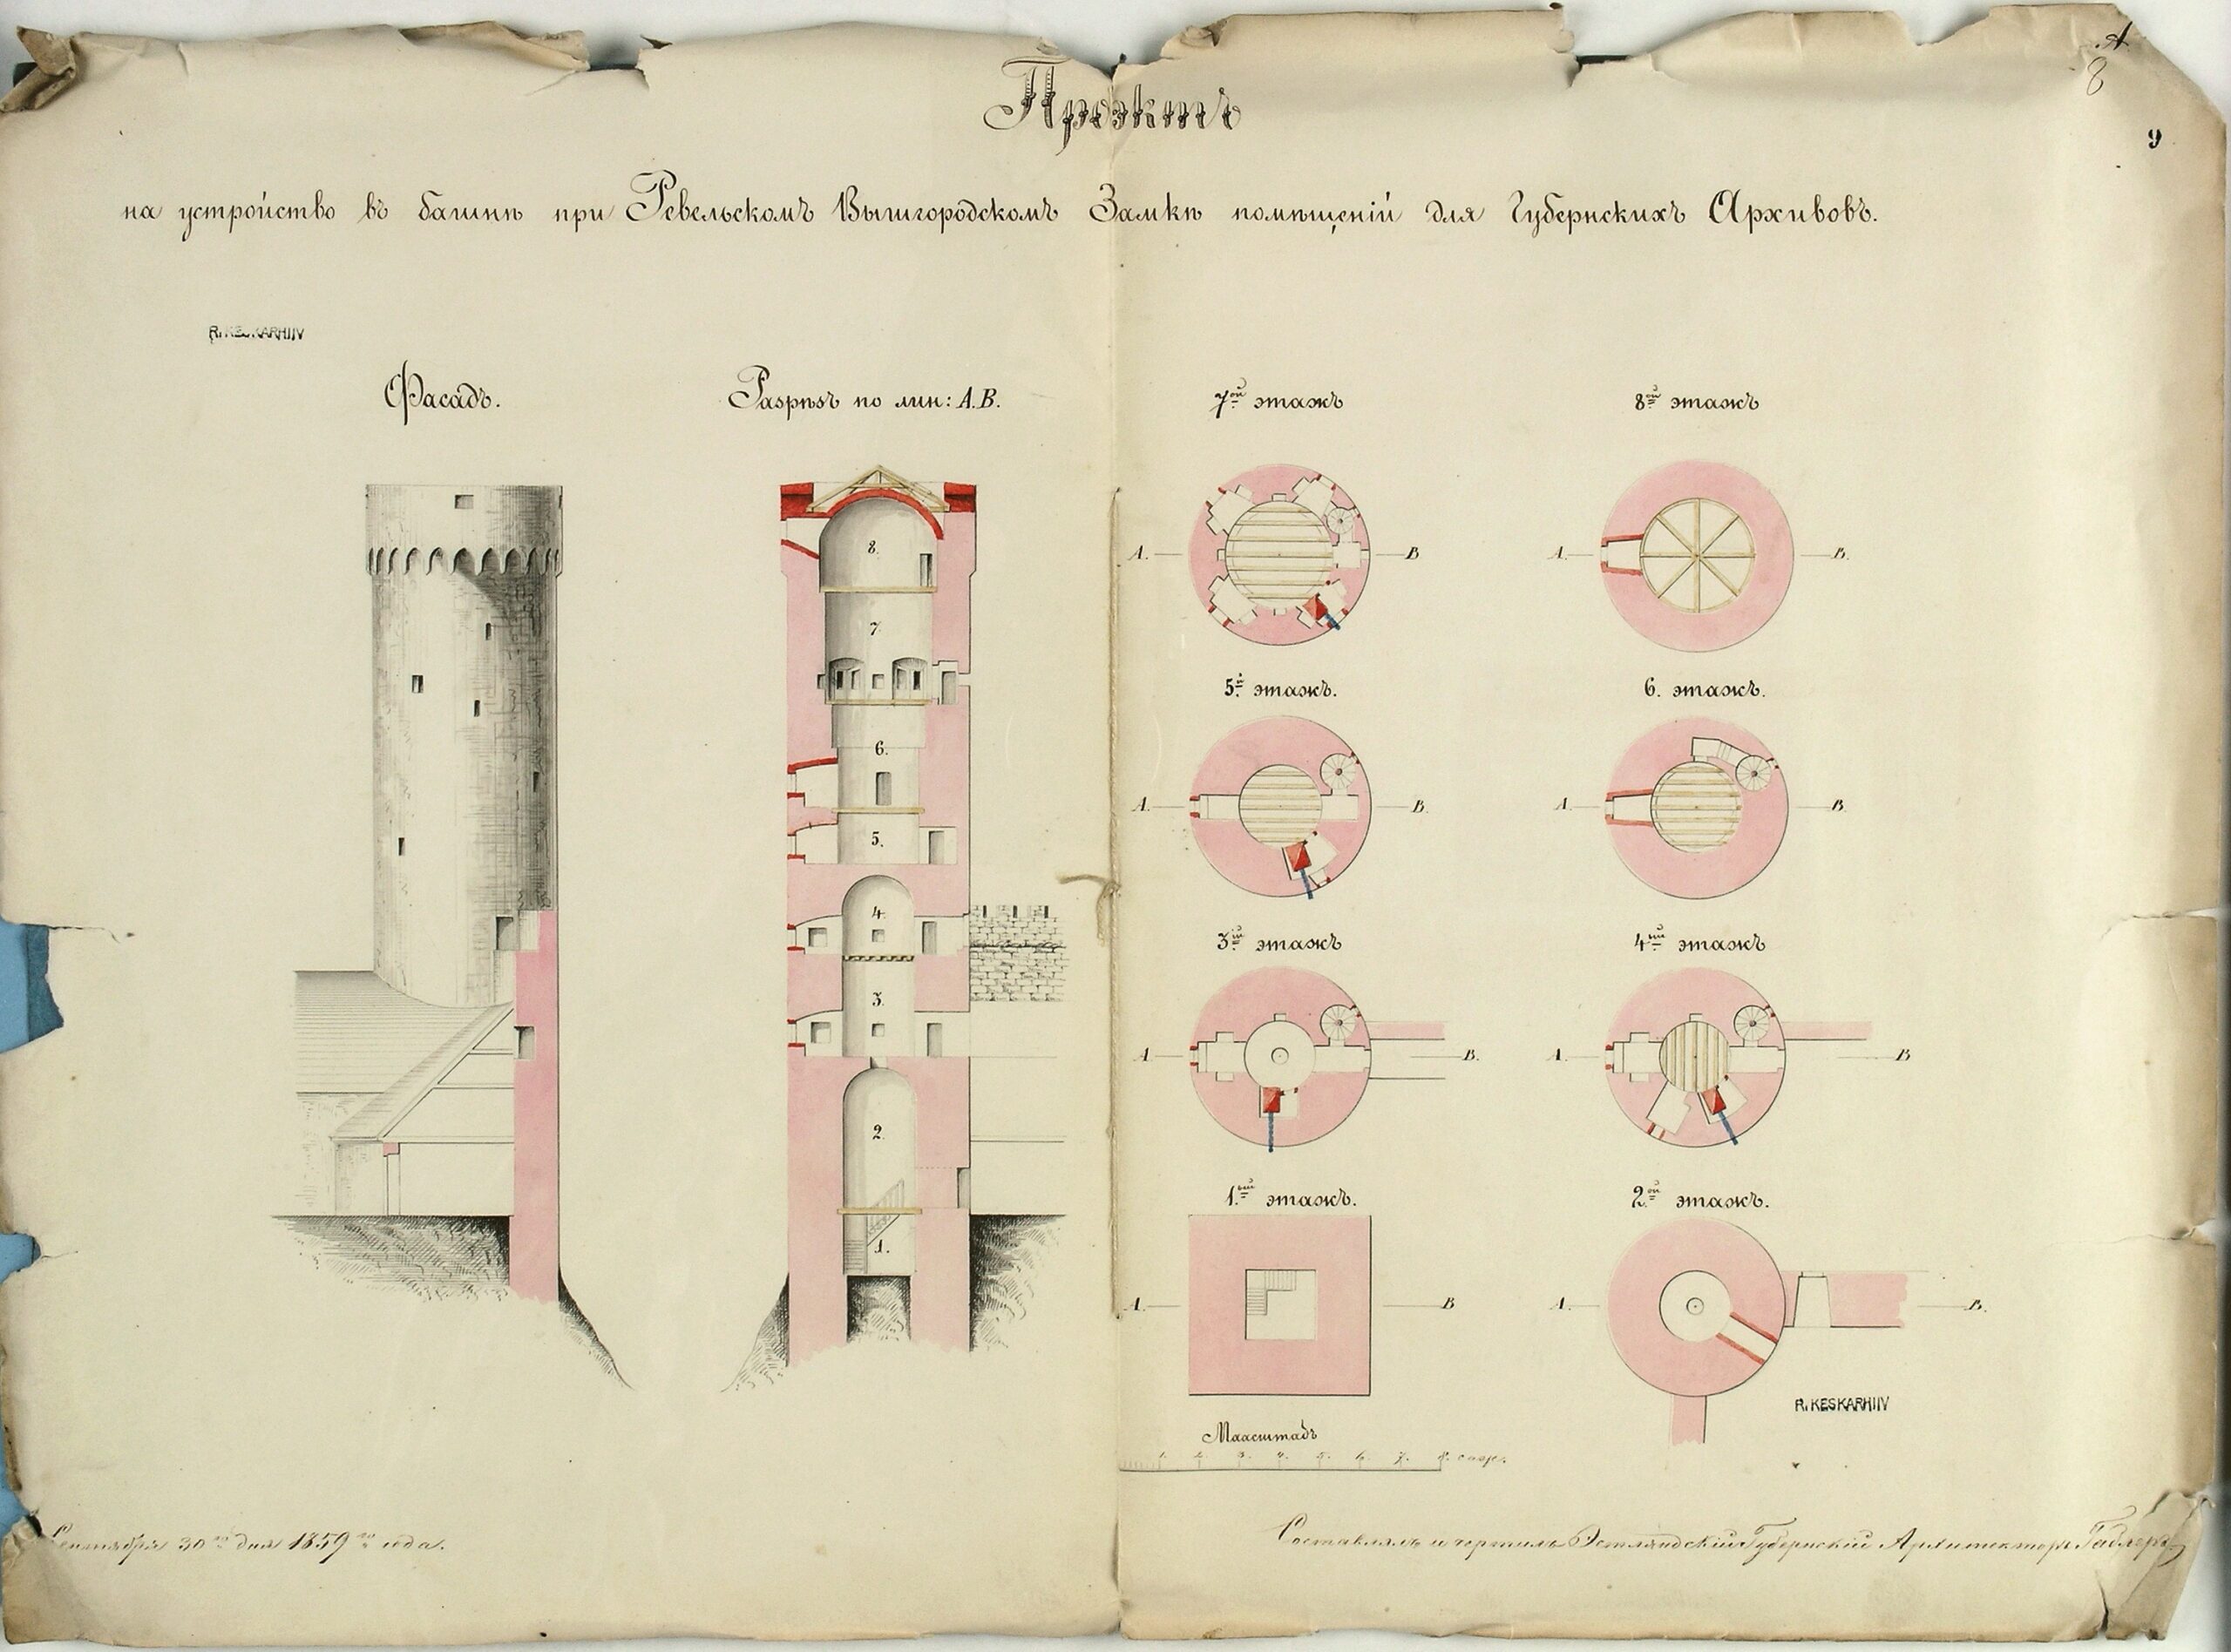 А
8
9
Проэктъ
на устройство въ башнѣ при Ревельскомъ Вышгородскомъ Замкѣ помѣщенiй для Губернскихъ Архивовъ.
R. KESKARHIIV
Фасадъ.
Разрѣзъ по лин: А.В.
7ой этажъ
8ой этажъ
8.
7.
6.
5.
4.
3.
2.
1.
A. B
A. B.
5й этажъ.
6. этажъ.
A. B.
A. B
3iй этажъ
4ый этажъ
A. B.
A. B
1ый этажъ.
2ой этажъ.
A. B
A. B.
R. KESKARHIIV
Маасштабъ
1. 2. 3. 4. 5. 6. 7. 8. саж.
Сентября 30го дня 1859го года.
Составлялъ и чертилъ Эстляндскiй Губернскiй Архитекторъ Габлеръ